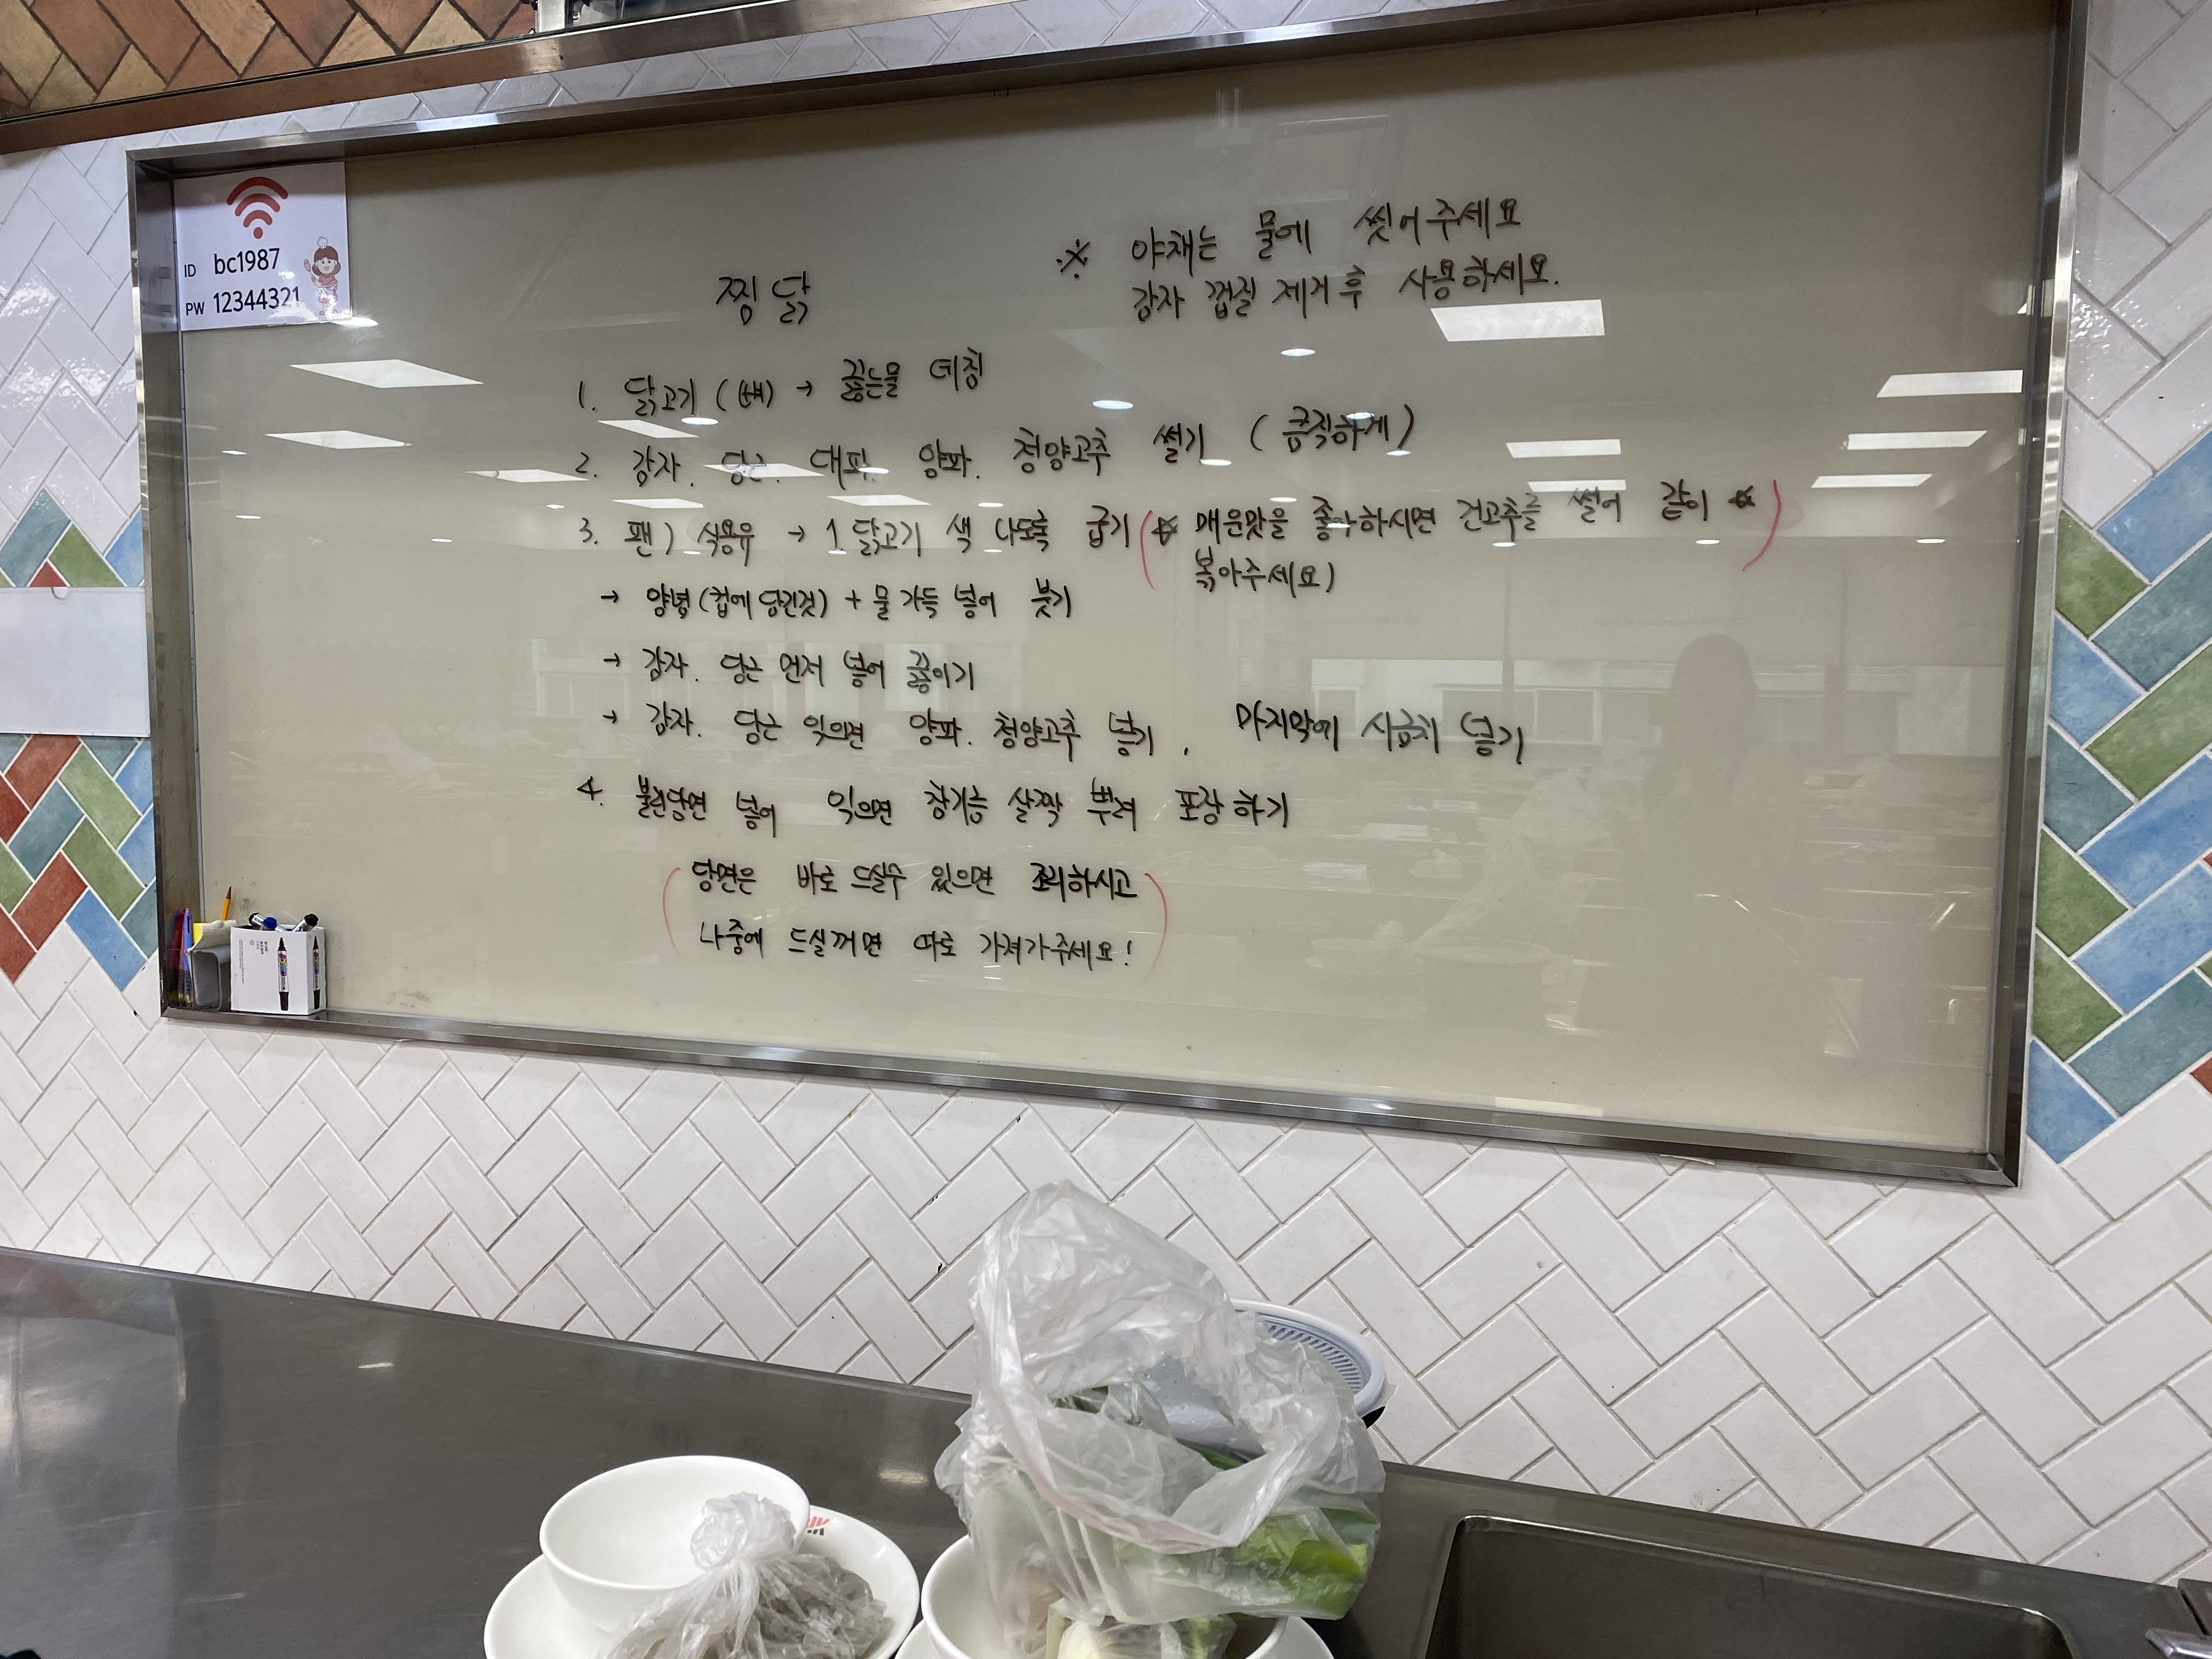 ID bc1987
PW 12344321
※ 야채는 물에 씻어주세요
감자 껍질 제거 후 사용하세요.
찜닭
1. 닭고기 (뼈) → 끓는물 데침
2. 감자. 당근. 대파. 양파. 청양고추 썰기 (큼직하게)
3. 팬) 식용유 → 1. 닭고기 색 나도록 굽기 (☆ 매운맛을 좋아하시면 건고추를 썰어 같이 ☆
볶아주세요)
→ 양념(컵에 담긴것) + 물 가득 넣어 붓기
→ 감자. 당근 먼저 넣어 끓이기
→ 감자. 당근 익으면 양파. 청양고추 넣기, 마지막에 시금치 넣기
4. 불린당면 넣어 익으면 참기름 살짝 뿌려 포장하기
(당면은 바로 드실수 있으면 조리하시고
나중에 드실꺼면 따로 가져가주세요!)